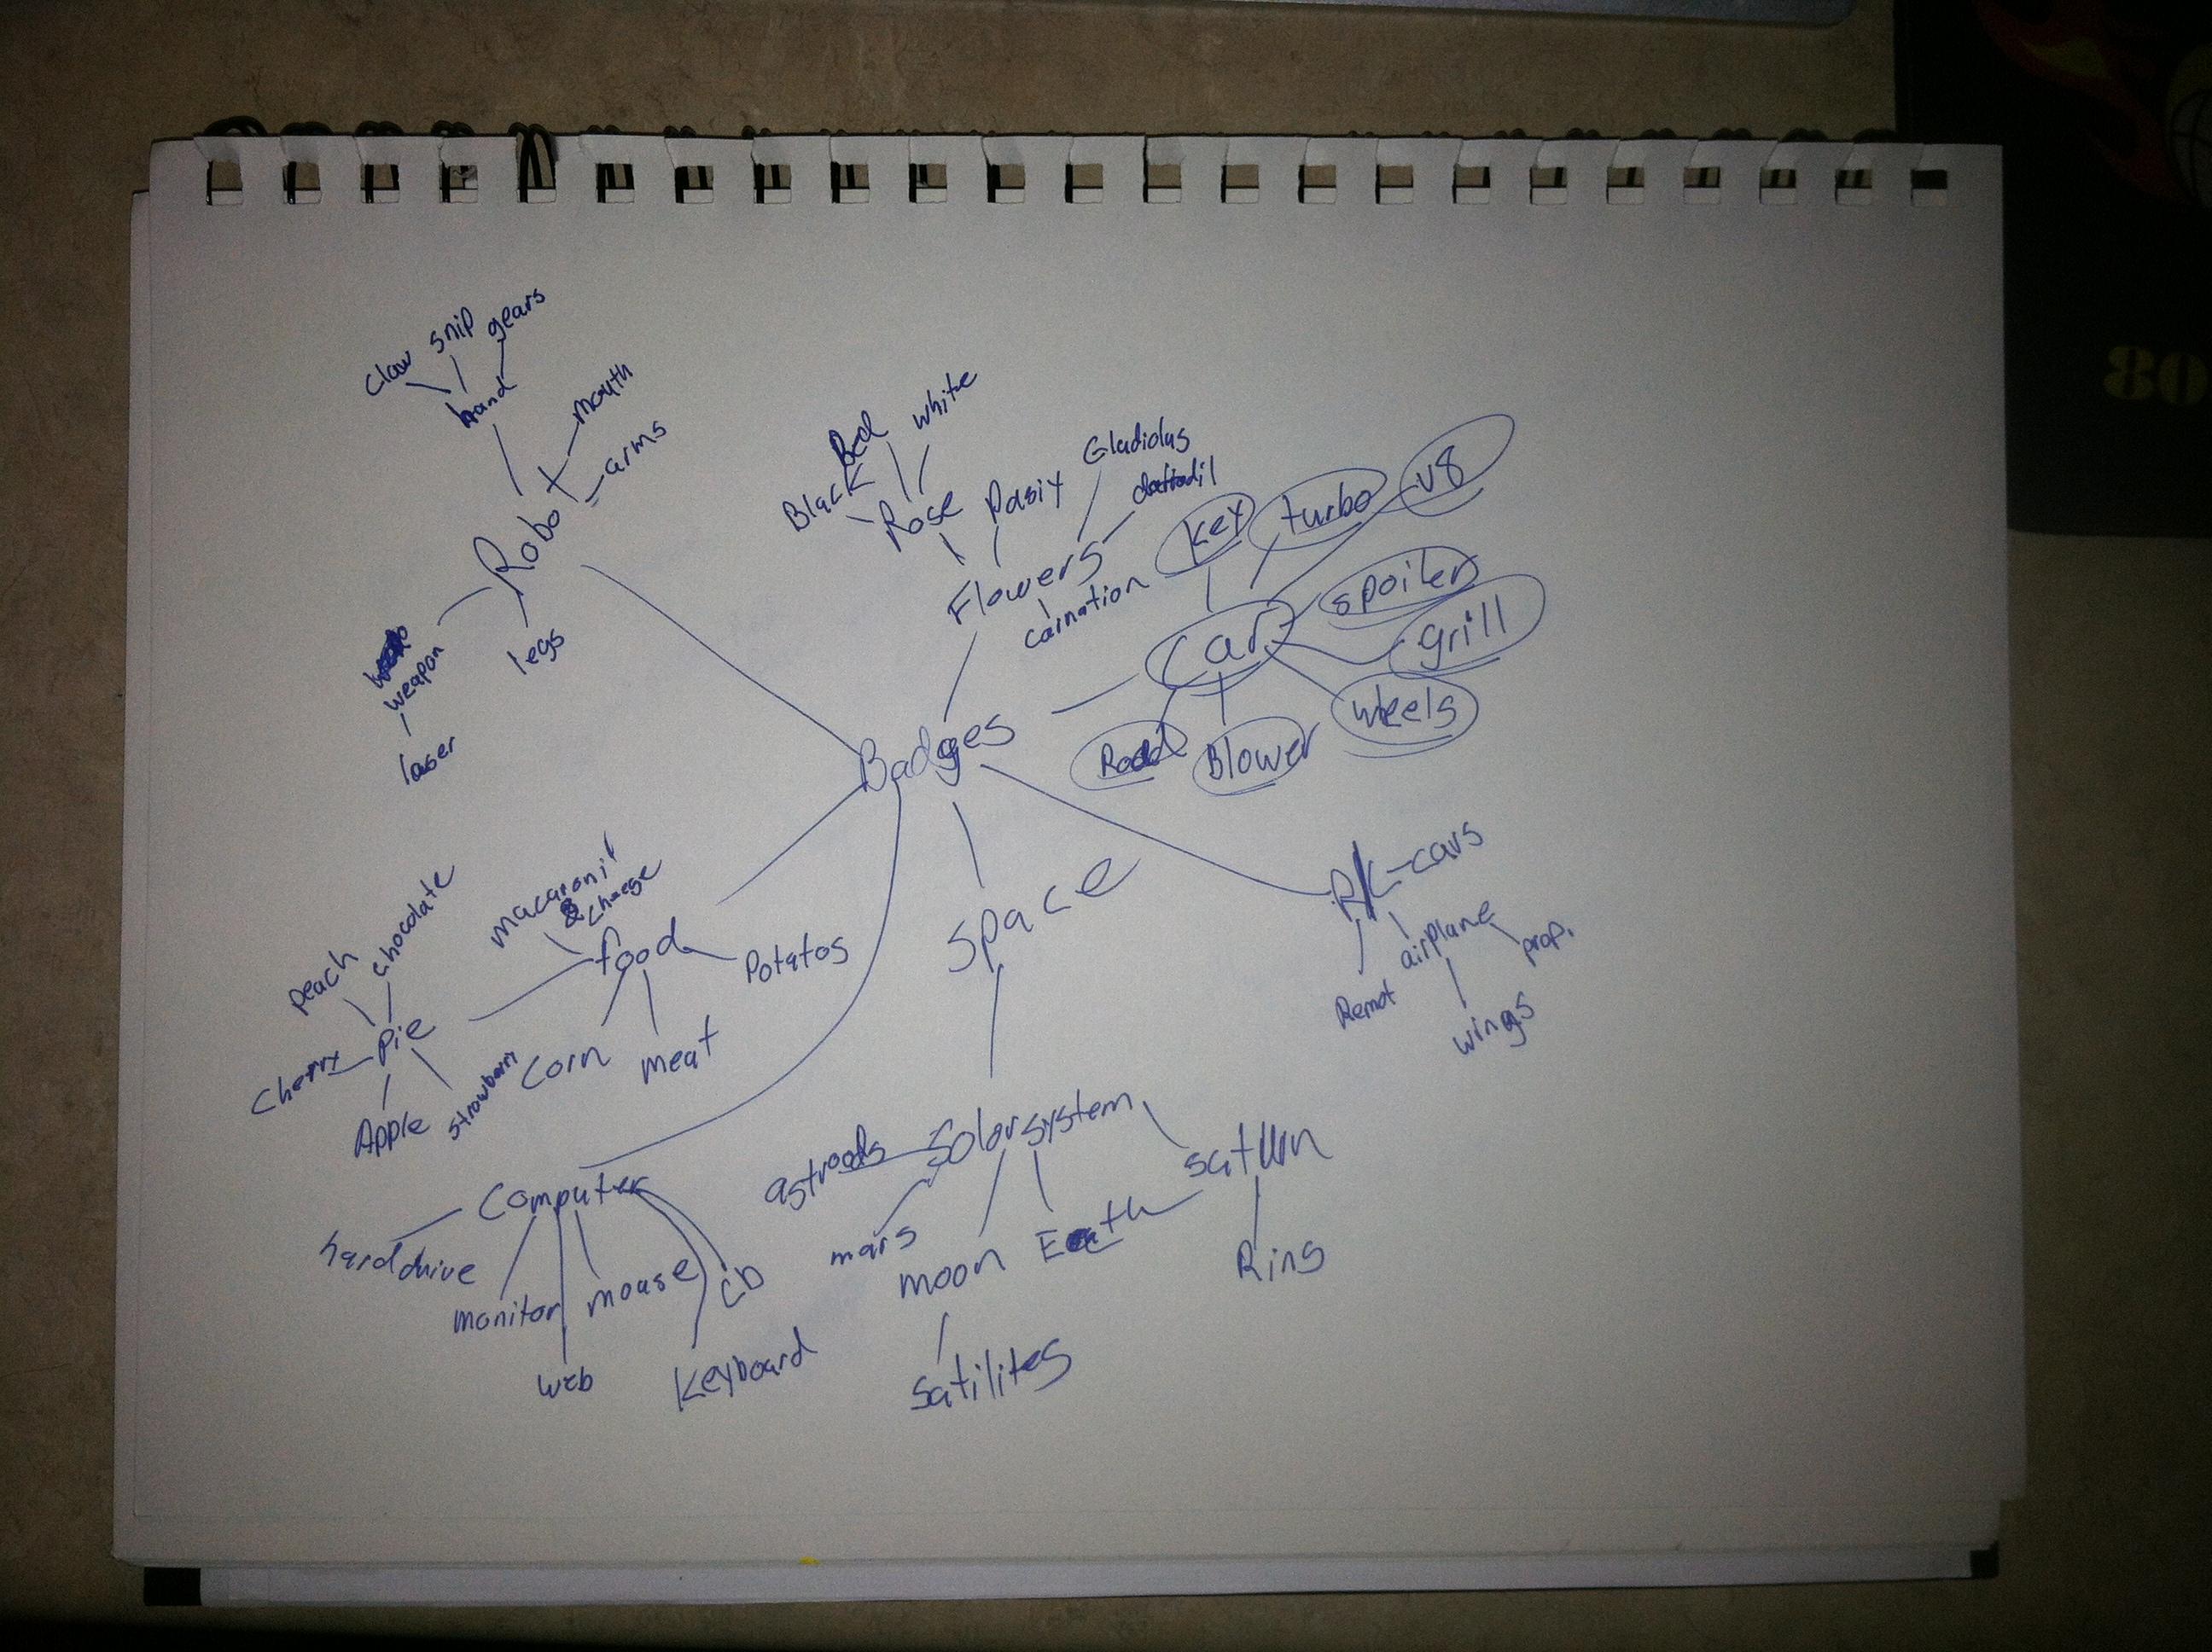 claw
snip
gears
hand
mouth
arms
Robot
weapon
laser
legs
Black
Red
white
Rose
Pasiy
Gladiolus
daffodil
Flowers
carnation
key
turbo
v8
spoiler
grill
wheels
Blower
car
Badges
R/C-cars
Remot
airplane
prop.
wings
macaroni
&
food
Potatos
corn
meat
peach
chocolate
Pie
Cherry
Apple
space
Solar system
astroods
mars
moon
Earth
saturn
Rins
satilites
Computer
hard drive
monitor
web
mouse
CD
Keyboard
80